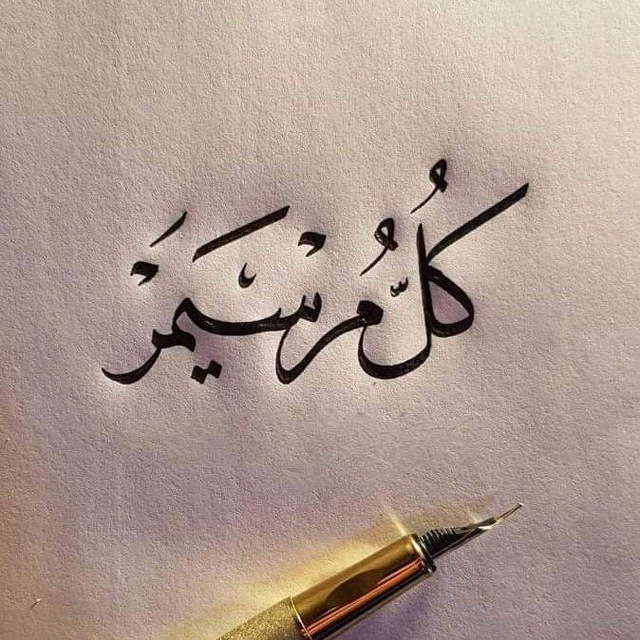 كُلُّ مُرْ سَيَمُرْ